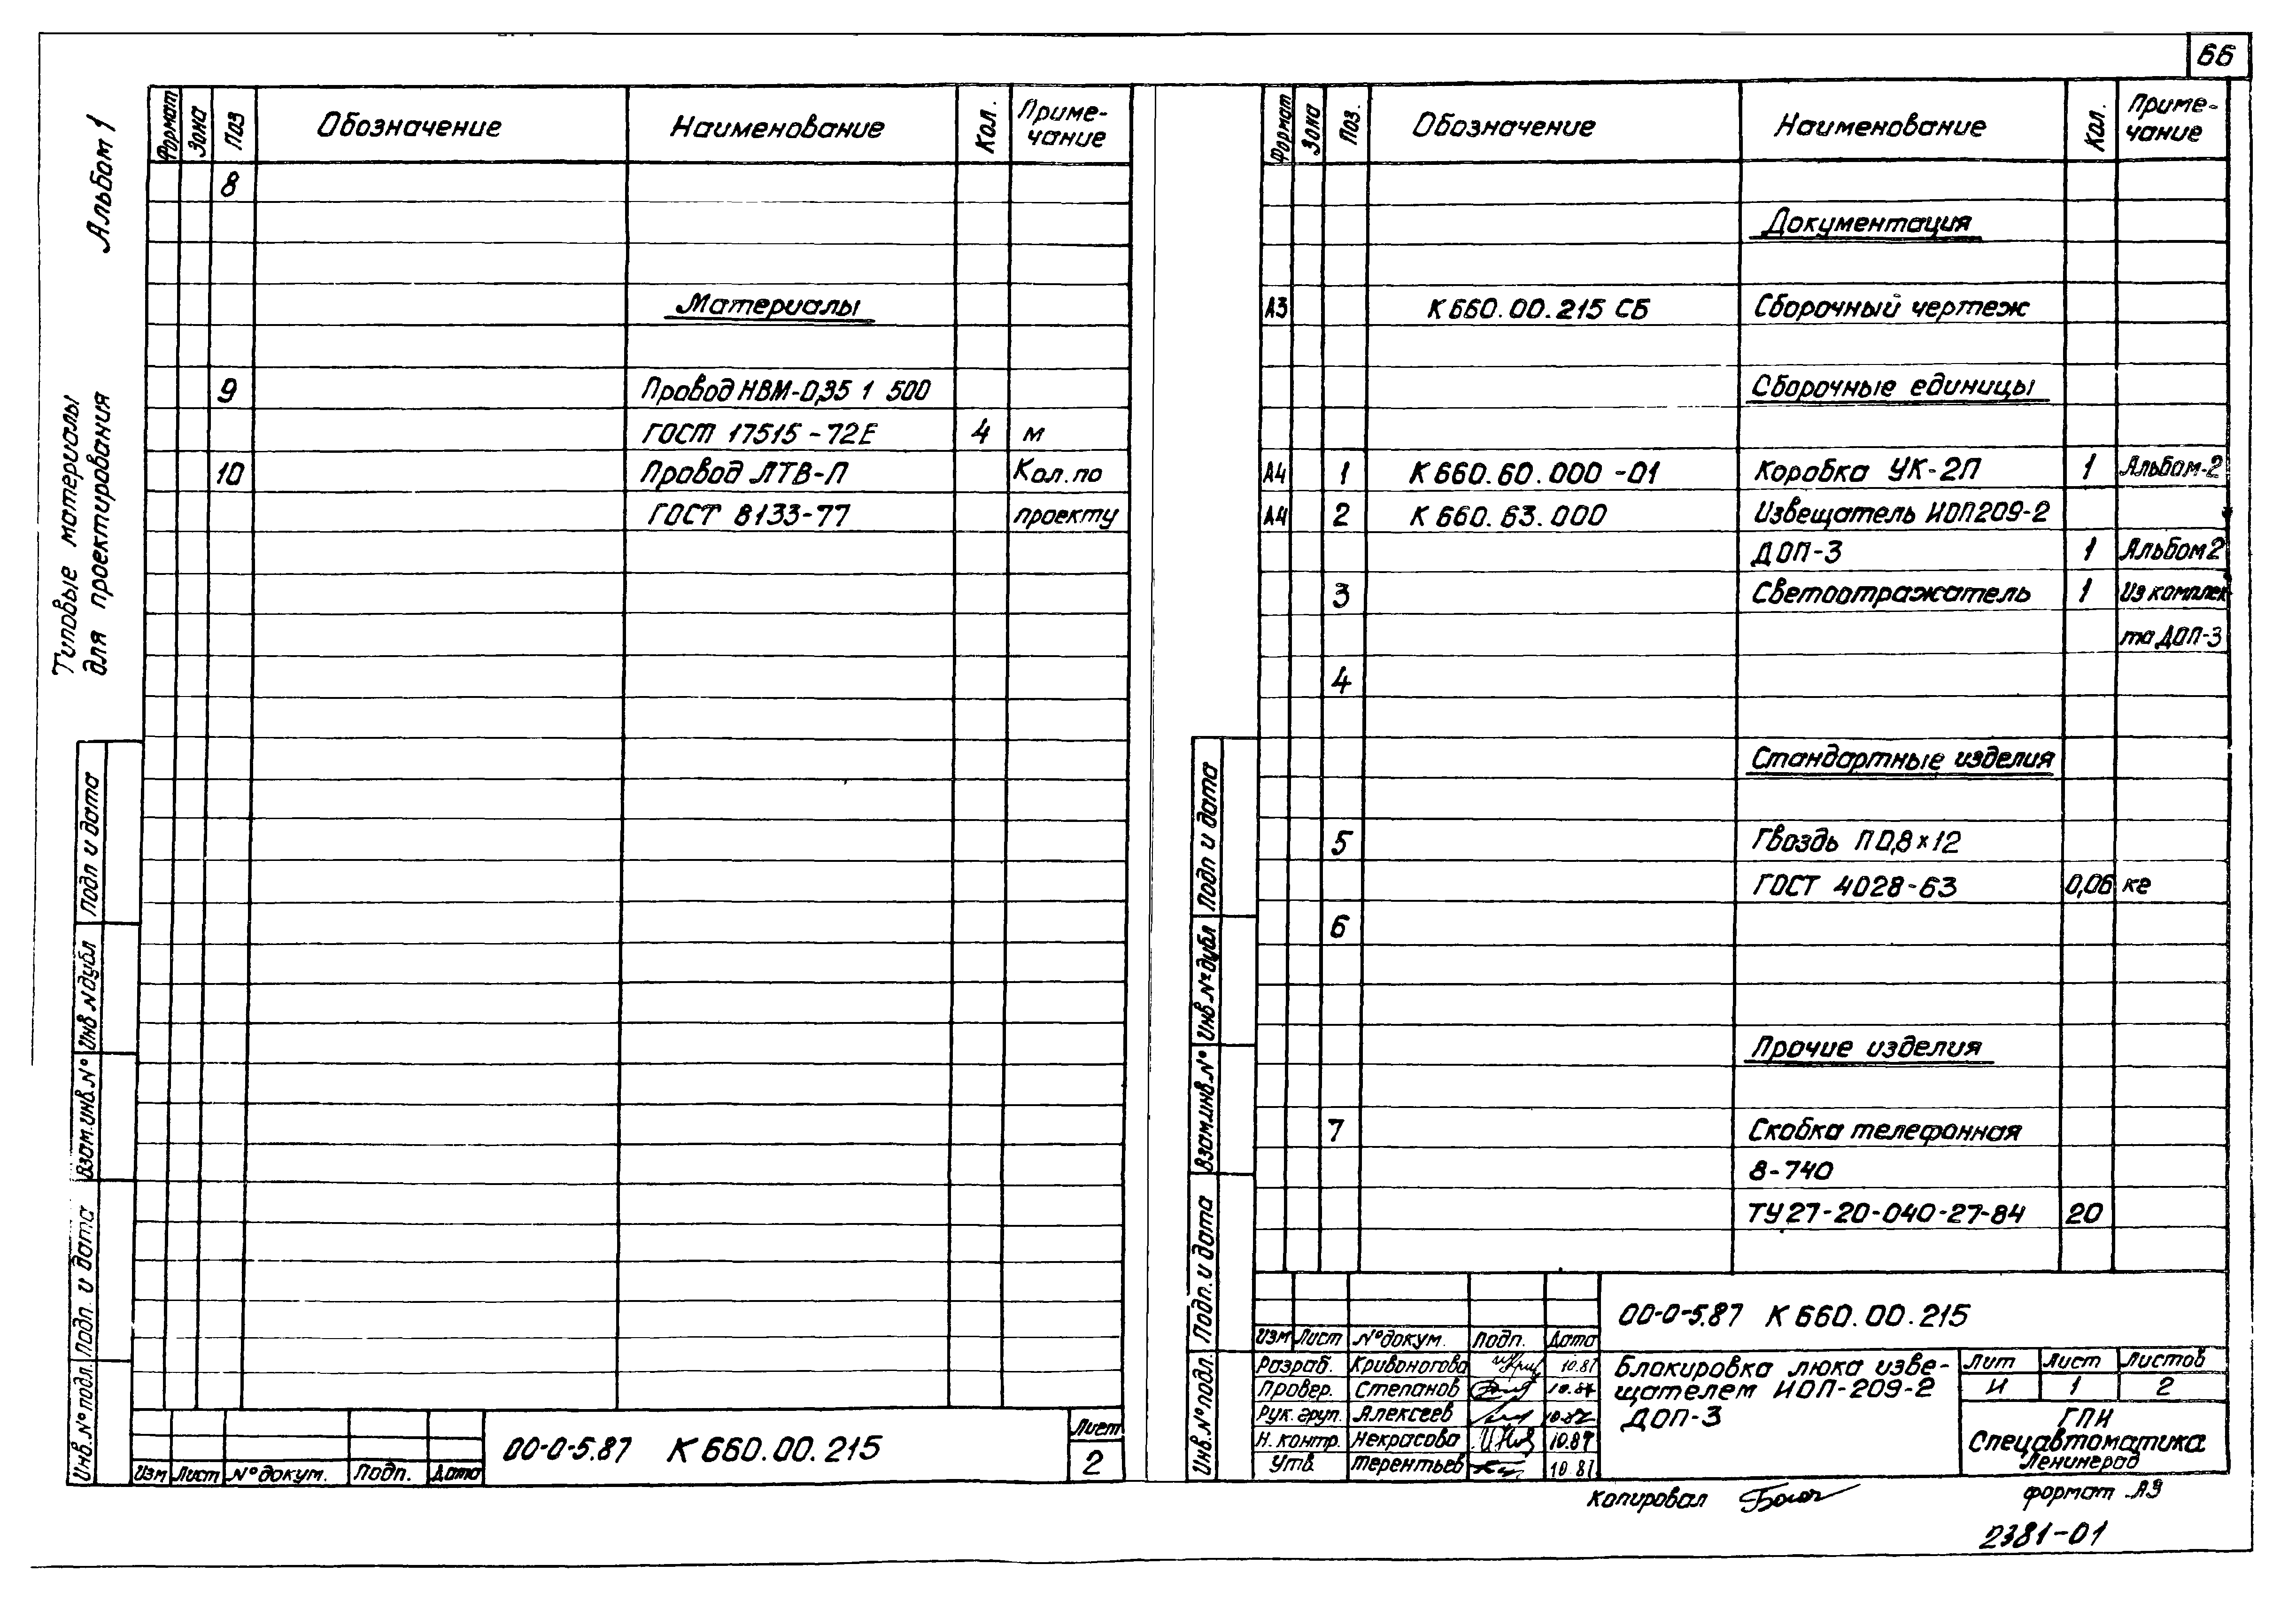 66
Альбом 1
Типовые материалы
для проектирования
Формат Зона Поз Обозначение Наименование Кол. Приме-
чание
8
Материалы
9 Провод НВМ-0,35 1 500
ГОСТ 17515-72Е 4 м
10 Провод ЛТВ-П Кол. по
ГОСТ 8133-77 проекту
Подп и дата
Инв N дубл
Взам.инв.N°
Подп. и дата
Инв.N°подл.
Изм Лист N°докум. Подп. Дата
00-0-5.87 К660.00.215
Лист
2
Формат Зона Поз. Обозначение Наименование Кол. Приме-
чание
Документация
А3 К660.00.215 СБ Сборочный чертеж
Сборочные единицы
А4 1 К660.60.000-01 Коробка УК-2П 1 Альбом-2
А4 2 К660.63.000 Извещатель ИОП209-2
ДОП-3 1 Альбом 2
3 Светоотражатель 1 Из комплек
та ДОП-3
4
Стандартные изделия
5 Гвоздь П 0,8×12
ГОСТ 4028-63 0,06 кг
6
Прочие изделия
7 Скобка телефонная
8-740
ТУ27-20-040-27-84 20
Подп и дата
Инв.N°дубл
Взам.инв.N°
Подп. и дата
Инв.N°подл.
Изм Лист N°докум. Подп. Дата
Разраб. Кривоногова 10.87
Провер. Степанов 10.87
Рук. груп. Алексеев 10.87
Н. контр. Некрасова 10.87
Утв. Терентьев 10.87
00-0-5.87 К660.00.215
Блокировка люка изве-
щателем ИОП-209-2
ДОП-3
Лит Лист Листов
И 1 2
ГПИ
Спецавтоматика
Ленинград
Копировал
формат А3
2381-01